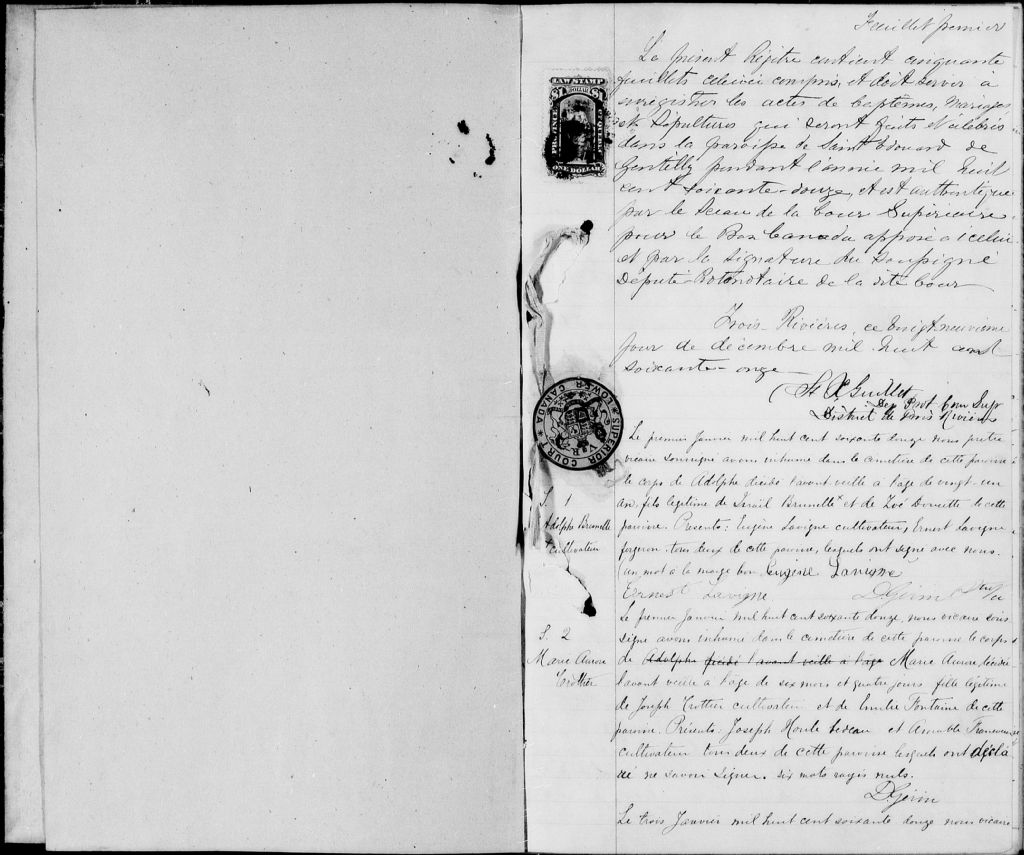 Feuillet premier
Le présent Régitre contient cinquante
feuillets celui-ci compris, et doit servir à
enrégistrer les actes de baptêmes, mariages
et Sépultures qui seront faits et célébrés
dans la paroisse de Saint Edouard de
Gentilly pendant l'année mil huit
cent soixante-douze, et est authentiqué
par le Sceau de la Cour Supérieure
pour le Bas Canada apposé à icelui
et par la Signature du soussigné
Député Protonotaire de la dite Cour
Trois-Rivières, ce vingt neuvième
jour de décembre mil huit cent
soixante-onze
Guillet
Dep Prot Cour Sup
District de Trois Rivières
LAW STAMP
DOLLAR
PROVINCE
QUEBEC
ONE DOLLAR
SUPERIOR COURT
LOWER CANADA
V R
S. 1
Adolphe Brunelle
cultivateur
Le premier Janvier mil huit cent soixante douze nous prêtre
vicaire soussigné avons inhumé dans le cimetière de cette paroisse
le corps de Adolphe décédé l'avant veille à l'age de vingt-un
an, fils légitime de Israil Brunelle x et de Zoé de cette
paroisse. Présents: Eugène Lavigne cultivateur, Ernest Lavigne
forgeron tous deux de cette paroisse, lesquels ont signé avec nous.
un mot à la marge bon Eugène Lavigne
Ernest Lavigne DGérin Ptre
S. 2
Marie Aurore
Trottier
Le premier Janvier mil huit cent soixante douze, nous vicaire sous
signé avons inhumé dans le cimetière de cette paroisse le corps
de Adolphe décédé l'avant veille à l'age Marie Aurore, décédée
l'avant veille à l'age de six mois et quatre jours fille légitime
de Joseph Trottier cultivateur et de Emilie Fontaine de cette
paroisse. Présents: Joseph Houle bedeau et Amable
cultivateur tous deux de cette paroisse lesquels ont décla
ré ne savoir signer. six mots rayés nuls.
DGérin
Le trois Janvier mil huit cent soixante douze nous vicaire